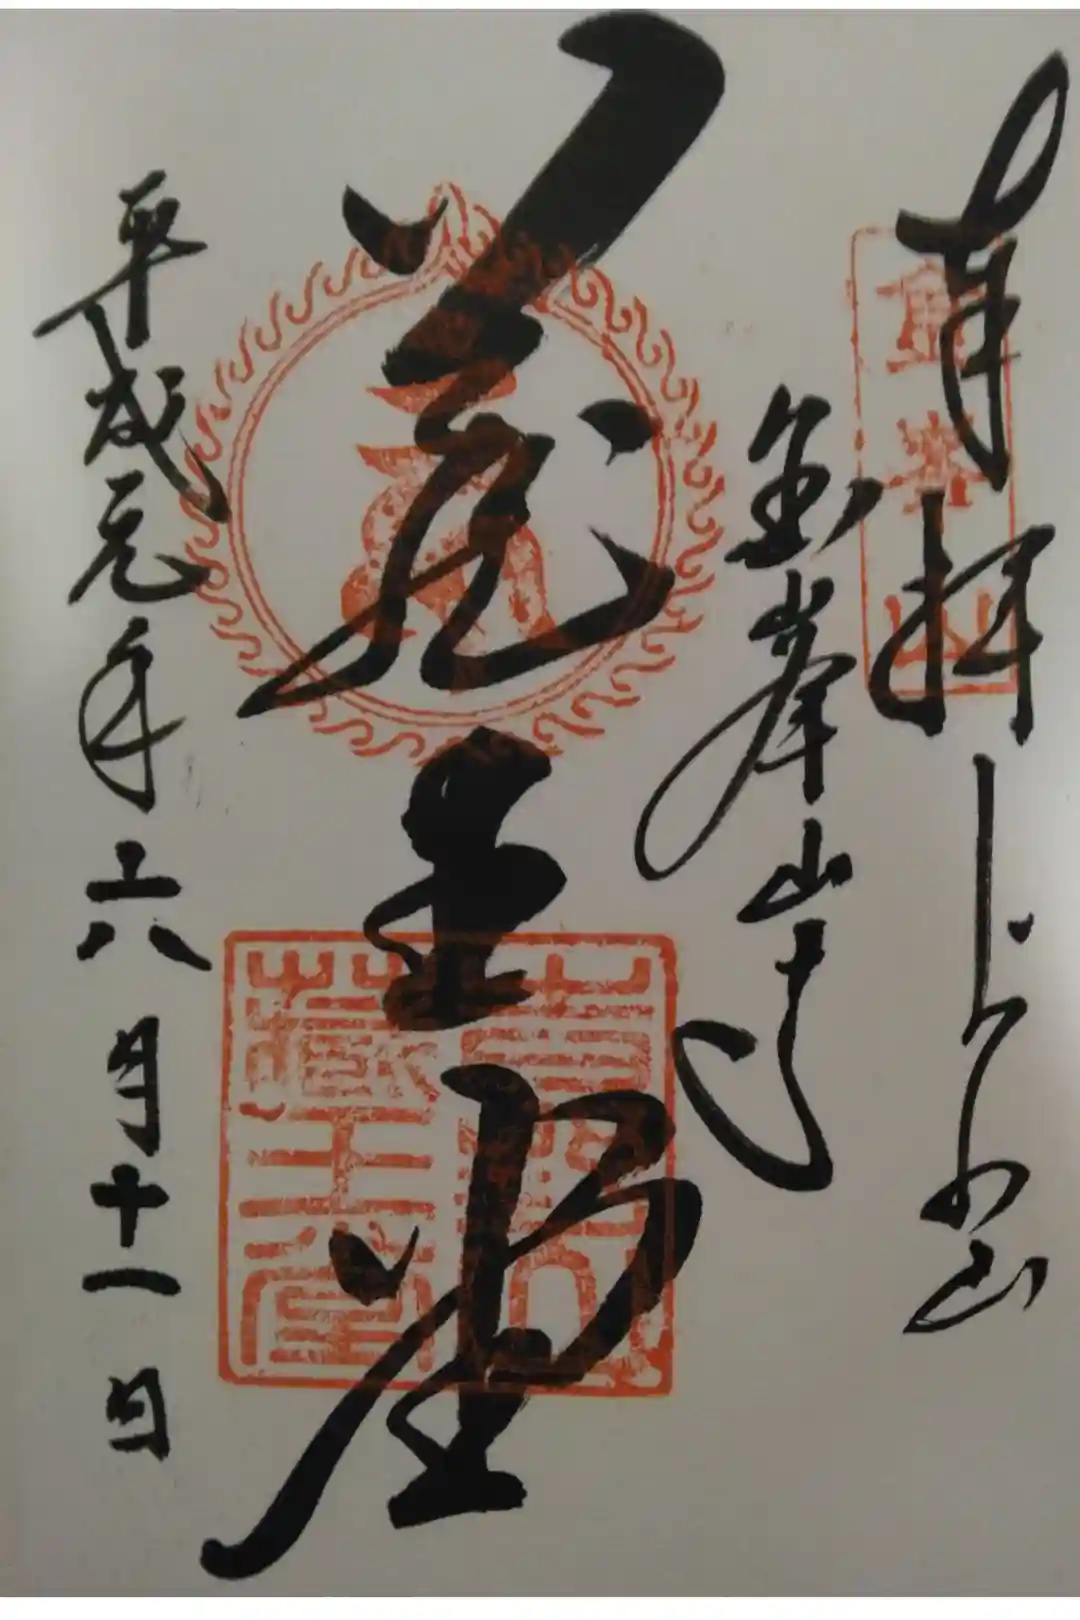 奉拝
金峯山
金峯山寺
蔵王堂
藏王堂
平成元年六月十一日